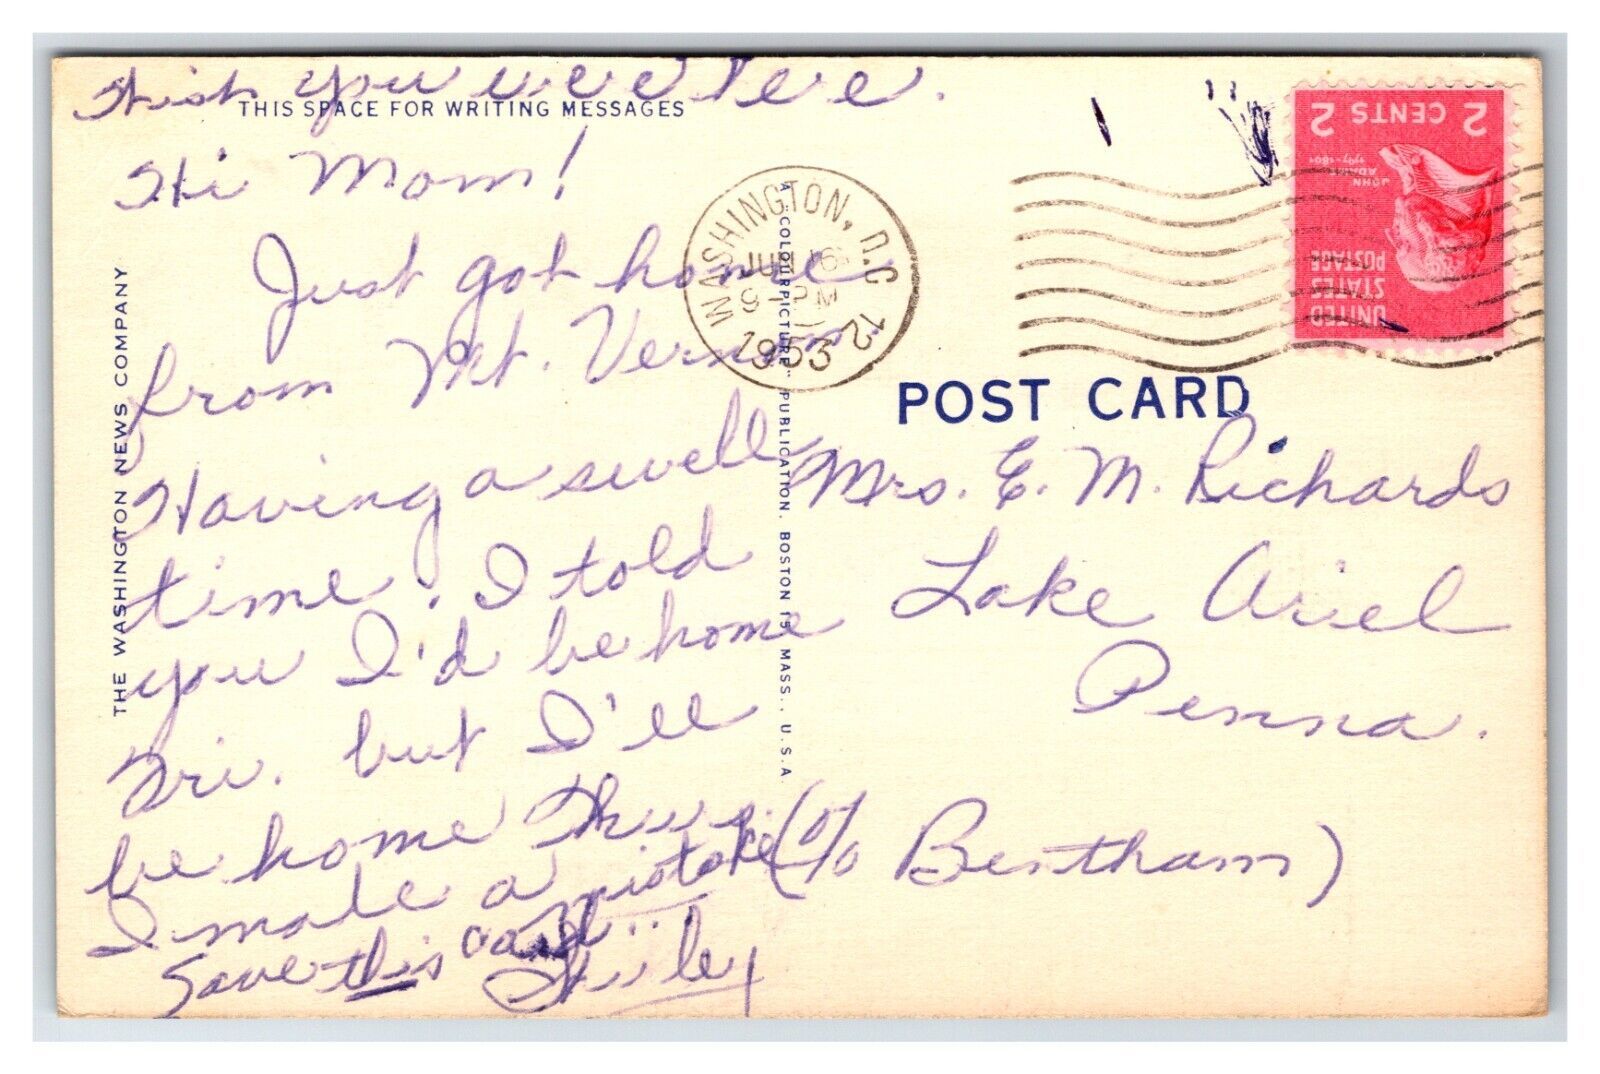 Wish you were here.
THIS SPACE FOR WRITING MESSAGES
Hi Mom!
Just got home
from Mt. Vernon.
Having a swell
time. I told
you I'd be home
Fri. but I'll
be home Thurs.
I made a mistake
Save this card
Shirley
THE WASHINGTON NEWS COMPANY
A "COLOURPICTURE" PUBLICATION, BOSTON 15, MASS., U.S.A.
WASHINGTON, D.C. 12
JUL 16
9 PM
1953
2 CENTS 2
JOHN ADAMS
1797-1801
UNITED
STATES
POSTAGE
POST CARD
Mrs. E. M. Richards
Lake Ariel
Penna.
(c/o Bentham)